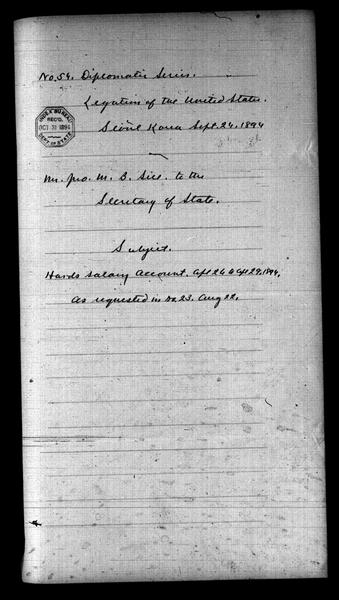 No. 54. Diplomatic Series.
Legation of the United States.
Seoul Korea Sept. 24. 1894
INDEX BUREAU
REC'D.
OCT 31 1894
DEPT. OF STATE
Mr. Jno. M. B. Sill. to the
Secretary of State.
Subject.
Hards Salary Account. Apl 26 to Apl 29, 1894,
As requested in No 23. Aug 22.